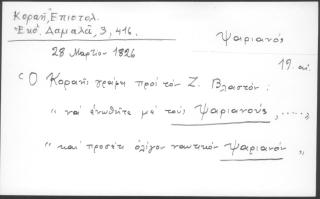 Κοραῆ, Ἐπιστολ.
Ἐκδ. Δαμαλᾶ, 3, 416.
Ψαριανός
28 Μαρτίου 1826
19 αἰ
Ὁ Κοραῆς γράφει πρὸς τὸν Ζ. Βλαστόν:
"νὰ ἑνωθῆτε μὲ τοὺς Ψαριανούς, ......."
"καὶ προσέτι ὀλίγον ναυτικὸν Ψαριανόν"